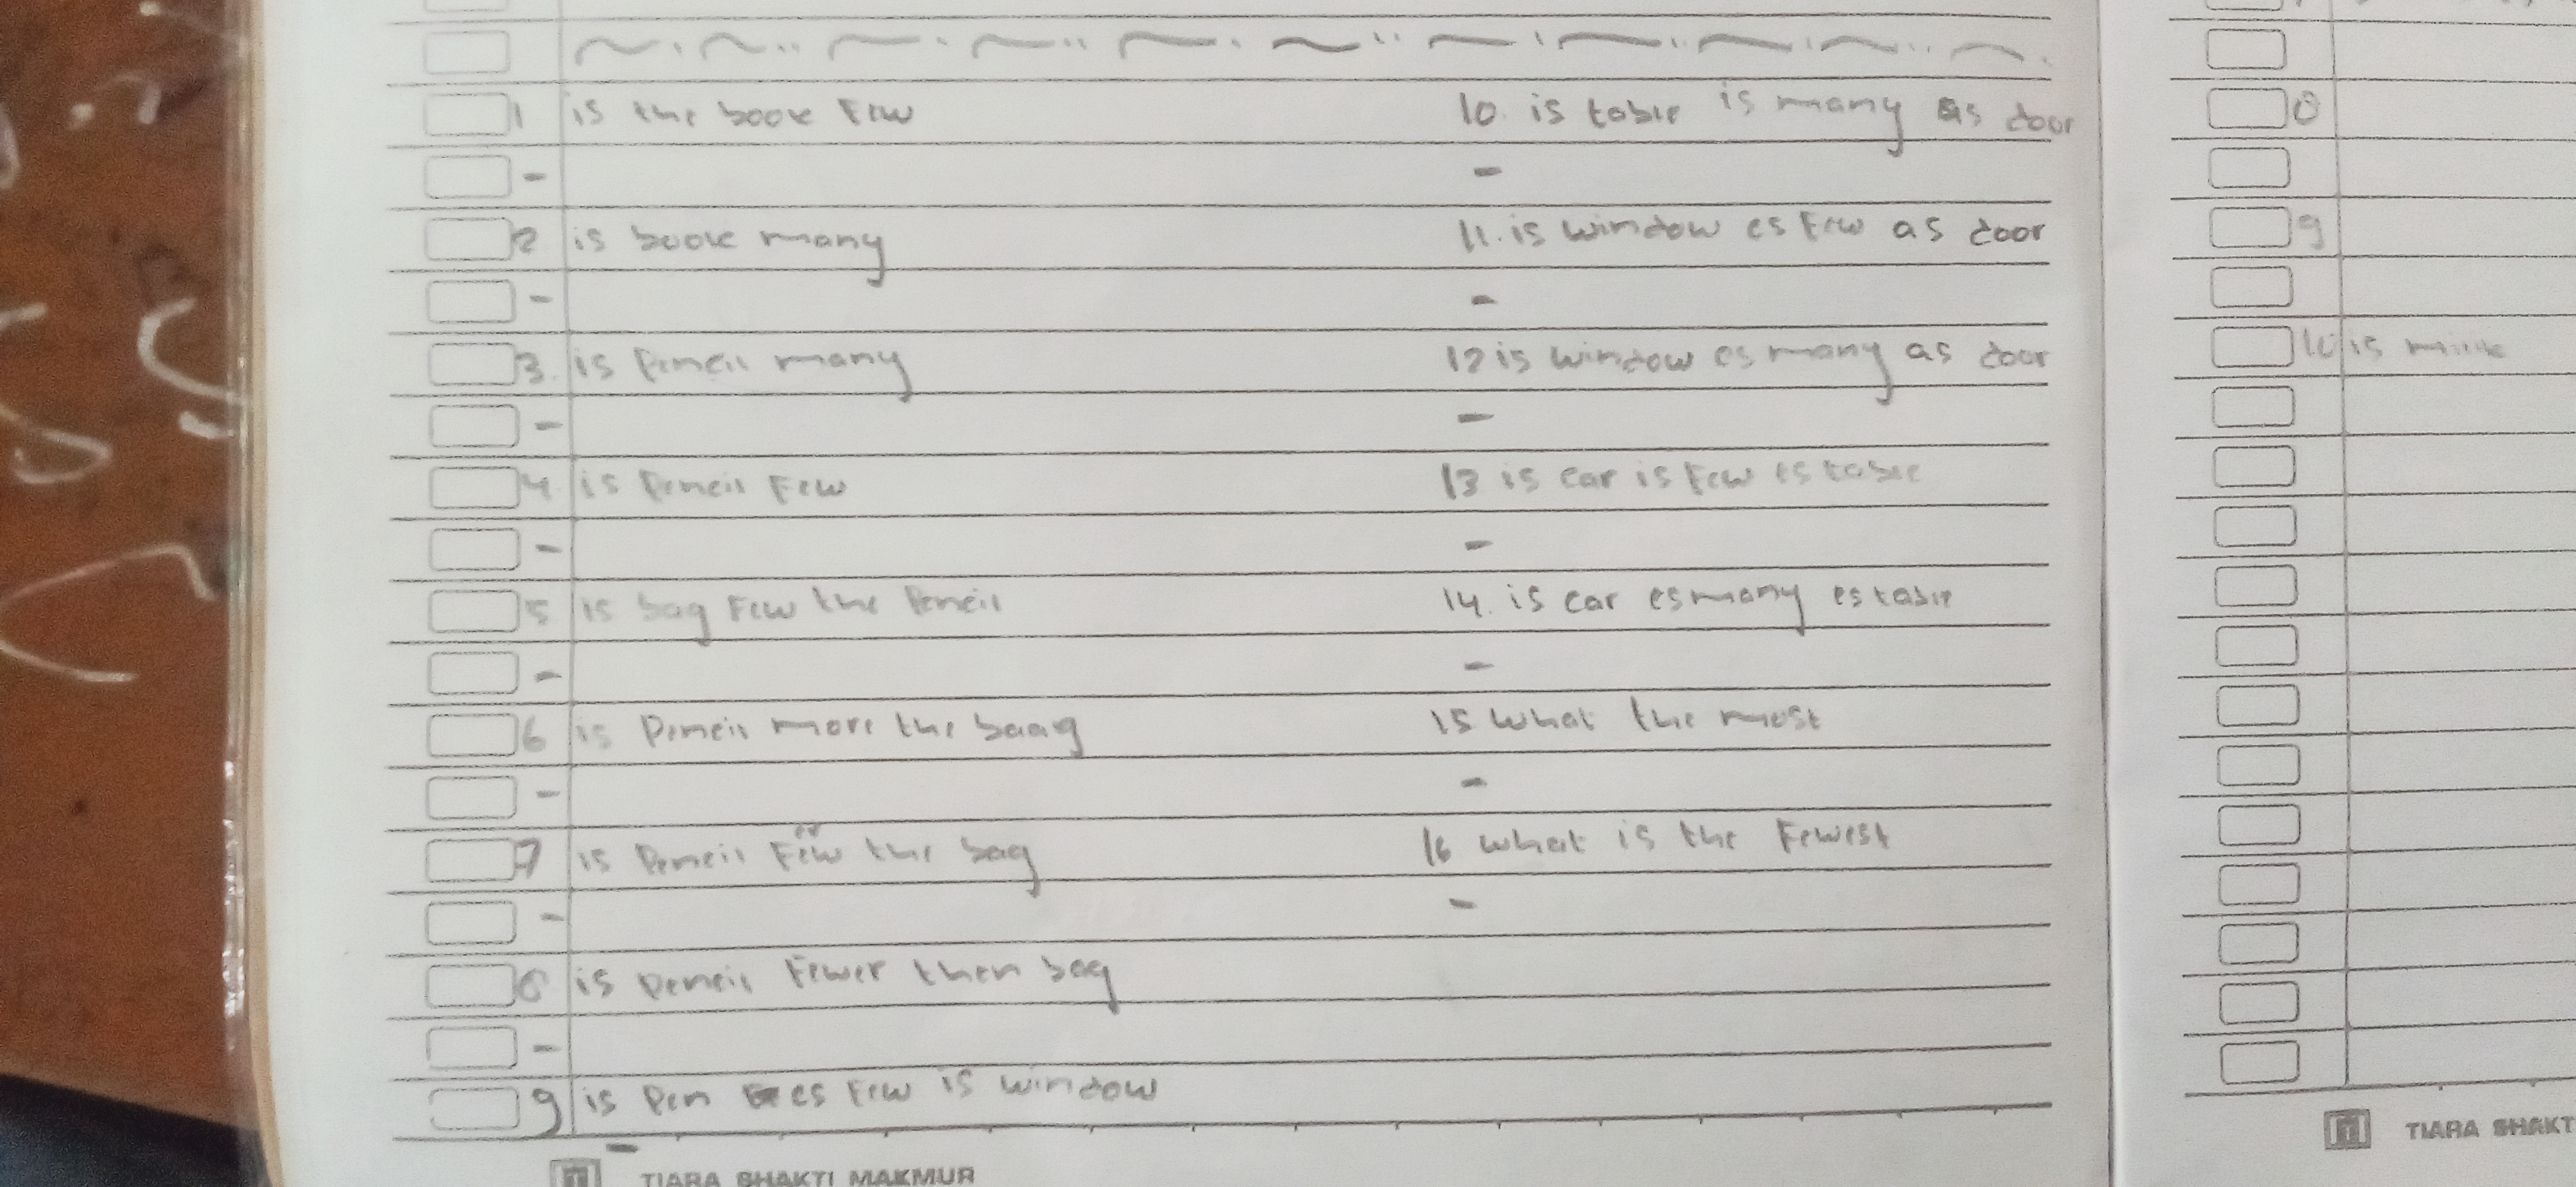 1 is the book Few
-
2 is book many
-
3. is Pencil many
-
4. is Pencil Few
-
5 is bag Few the Pencil
-
6 is Pencil more the baag
-
7 is Pencil Few er the bag
-
8 is pencil Fewer then bag
-
9 is Pen es Few is window
-
10. is table is many as door
-
11. is window es Few as door
-
12 is window es many as door
-
13 is car is Few es table
-
14. is car es many es table
-
15 what the most
-
16 what is the Fewest
-
TIARA SHAKTI MAKMUR
8
9
10 is
TIARA SHAKT